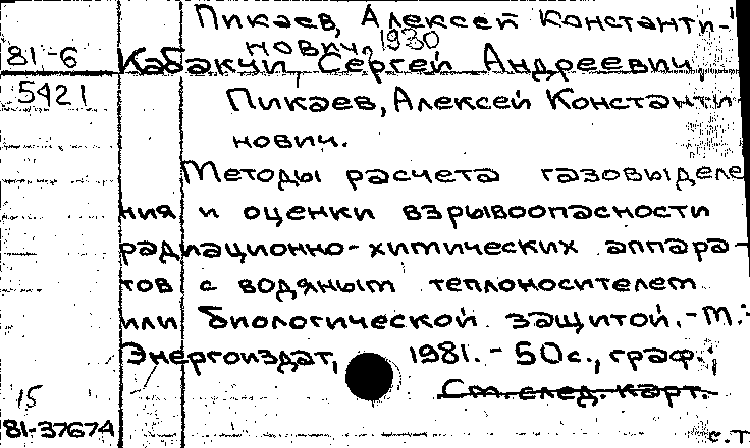 Пикаев, Алексей Константи-
нович, 1930
81-6 Кабакчи Сергей Андреевич,
5421 Пикаев, Алексей Константи
нович.
Методы расчета газовыделе
ния и оценки взрывоопасности
радиационно-химических аппара-
тов с водяным теплоносителем
или биологической защитой.-М.:
Энергоиздат, 1981.-50с., граф.;
15 См. след. карт.
81-37674 с.т